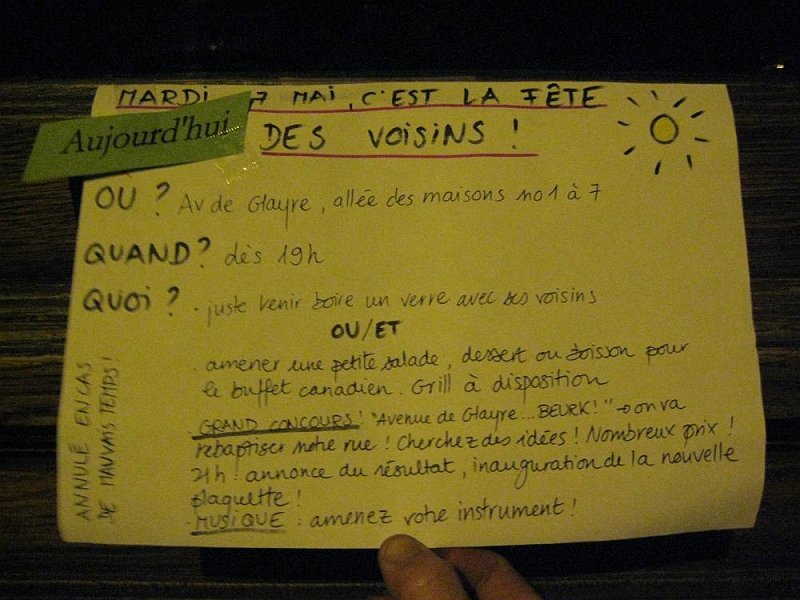 MARDI 7 MAI, C'EST LA FÊTE
Aujourd'hui
DES VOISINS !
OÙ ? Av de Glayre, allée des maisons no 1 à 7
QUAND ? dès 19h
QUOI ? - juste venir boire un verre avec ses voisins
OU/ET
- amener une petite salade, dessert ou boisson pour
le buffet canadien. Grill à disposition
- GRAND CONCOURS ! "Avenue de Glayre... BEURK !" → on va
rebaptiser notre rue ! Cherchez des idées ! Nombreux prix !
21h : annonce du résultat, inauguration de la nouvelle
plaquette !
- MUSIQUE : amenez votre instrument !
ANNULÉ EN CAS
DE MAUVAIS TEMPS !